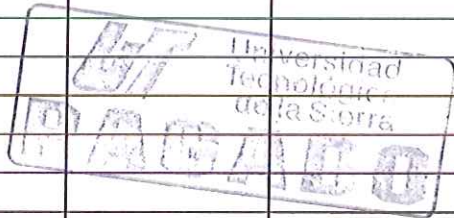 UT
Universidad
Tecnológica
de la Sierra
PAGADO